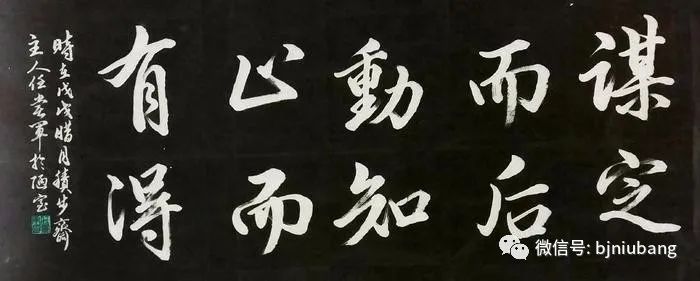 谋定
而后
動知
止而
有得
時在戊戌腊月步齋
主人任軍於陋室
微信号: bjniubang